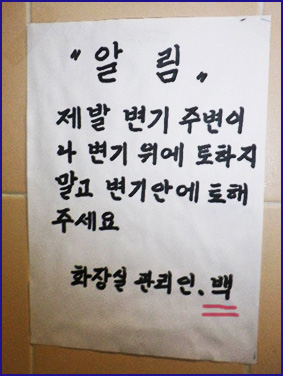 "알 림"
제발 변기 주변이
나 변기 위에 토하지
말고 변기안에 토해
주세요
화장실 관리인.백